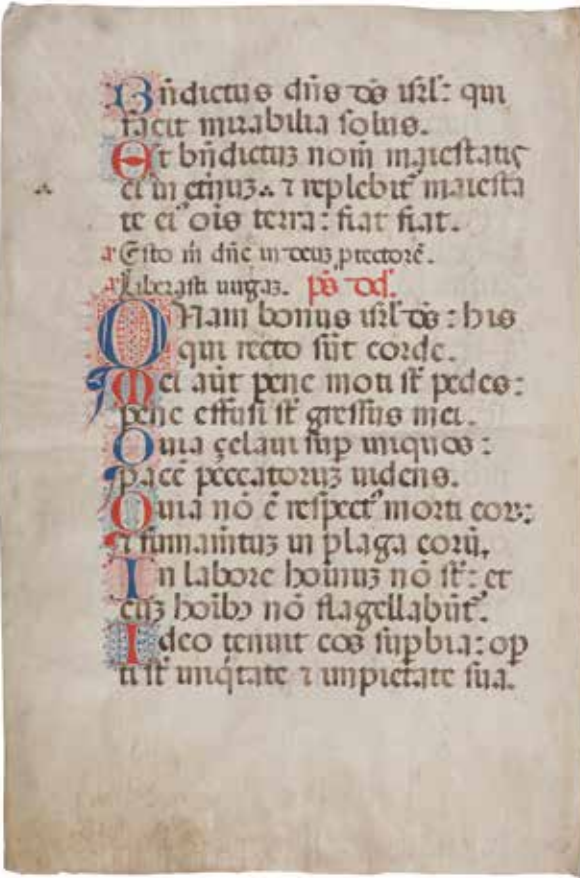 Bñdictus dñs ds̄ isrl̄: qui
facit mirabilia solus.
Et bñdictuꝫ nom̄ maiestatis
ei in et̄nuꝫ: ⁊ replebit᷑ maiesta
te ei᷒ oı̄s terra: fiat fiat.
a᷑ Esto m̄ dn̄e in deuꝫ ꝓtectorē.
a᷑ Liberasti uirgaꝫ. ps̄ dd̄.
QVam bonus isrl̄ ds̄: his
qui recto sūt corde.
Mei aūt pene moti st̄ pedes:
pene effusi st̄ gressus mei.
Quia çelaui suꝑ iniquos:
pacē peccatoruꝫ uidens.
Quia nō ē respect᷒ morti eoꝝ:
⁊ firmam̄tuꝫ in plaga eorū.
In labore hoı̄nuꝫ nō st̄: et
cuꝫ hoı̄bꝫ nō flagellabūt᷑.
Ideo tenuit eos suꝑbia: oꝑ
ti st̄ iniq̇tate ⁊ impietate sua.